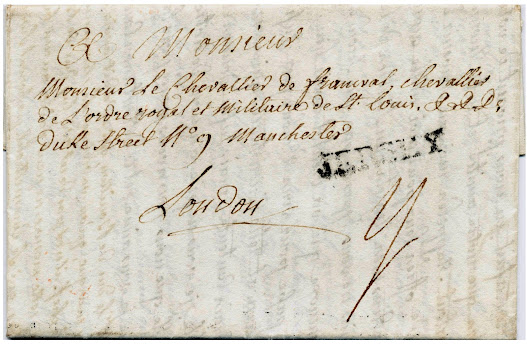 A Monsieur
Monsieur Le Chevallier de framval, chevallier
de L'ordre royal et Militaire de St. Louis. & & &.
duke street N° 9 Manchester
JERSEY
London